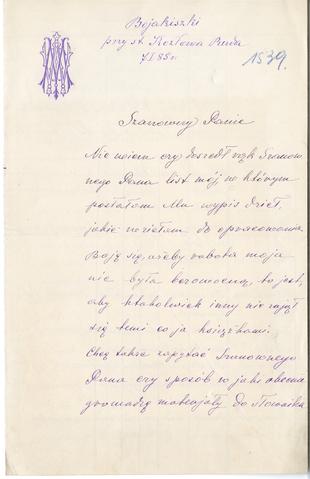 Bojakiszki
przy st. Kozłowa Ruda
7/I 85 r.
1539.
Szanowny Panie
Nie wiem czy doszedł rąk Szanow
nego Pana list mój w którym
posłałem Mu wypis dzieł,
jakie wziełem do opracowania.
Boję się, ażeby robota moja
nie była bezowocną, to jest,
aby ktokolwiek inny nie zajął
się temi co ja książkami.
Chcę także zapytać Szanownego
Pana czy sposób w jaki obecnie
gromadzę materjały do Słownika